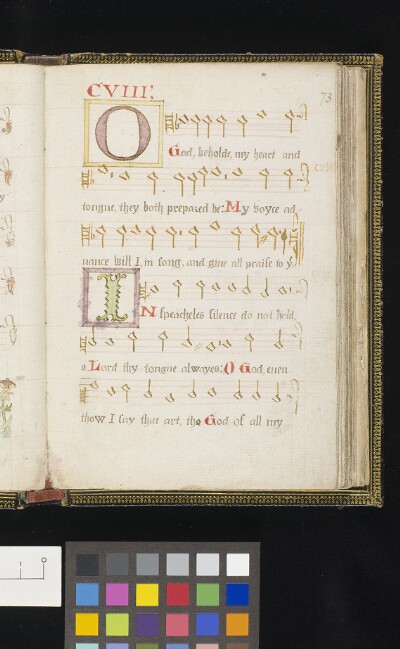 CVIII:
73
O God, beholde, my heart and
tongue, they both prepared be: My voyce ad
uance will I, in song, and giue all praise to yͤ
IN speacheles silence do not hold,
o Lord thy tongue alwayes: O God, euen
thow I say that art, the God of all my